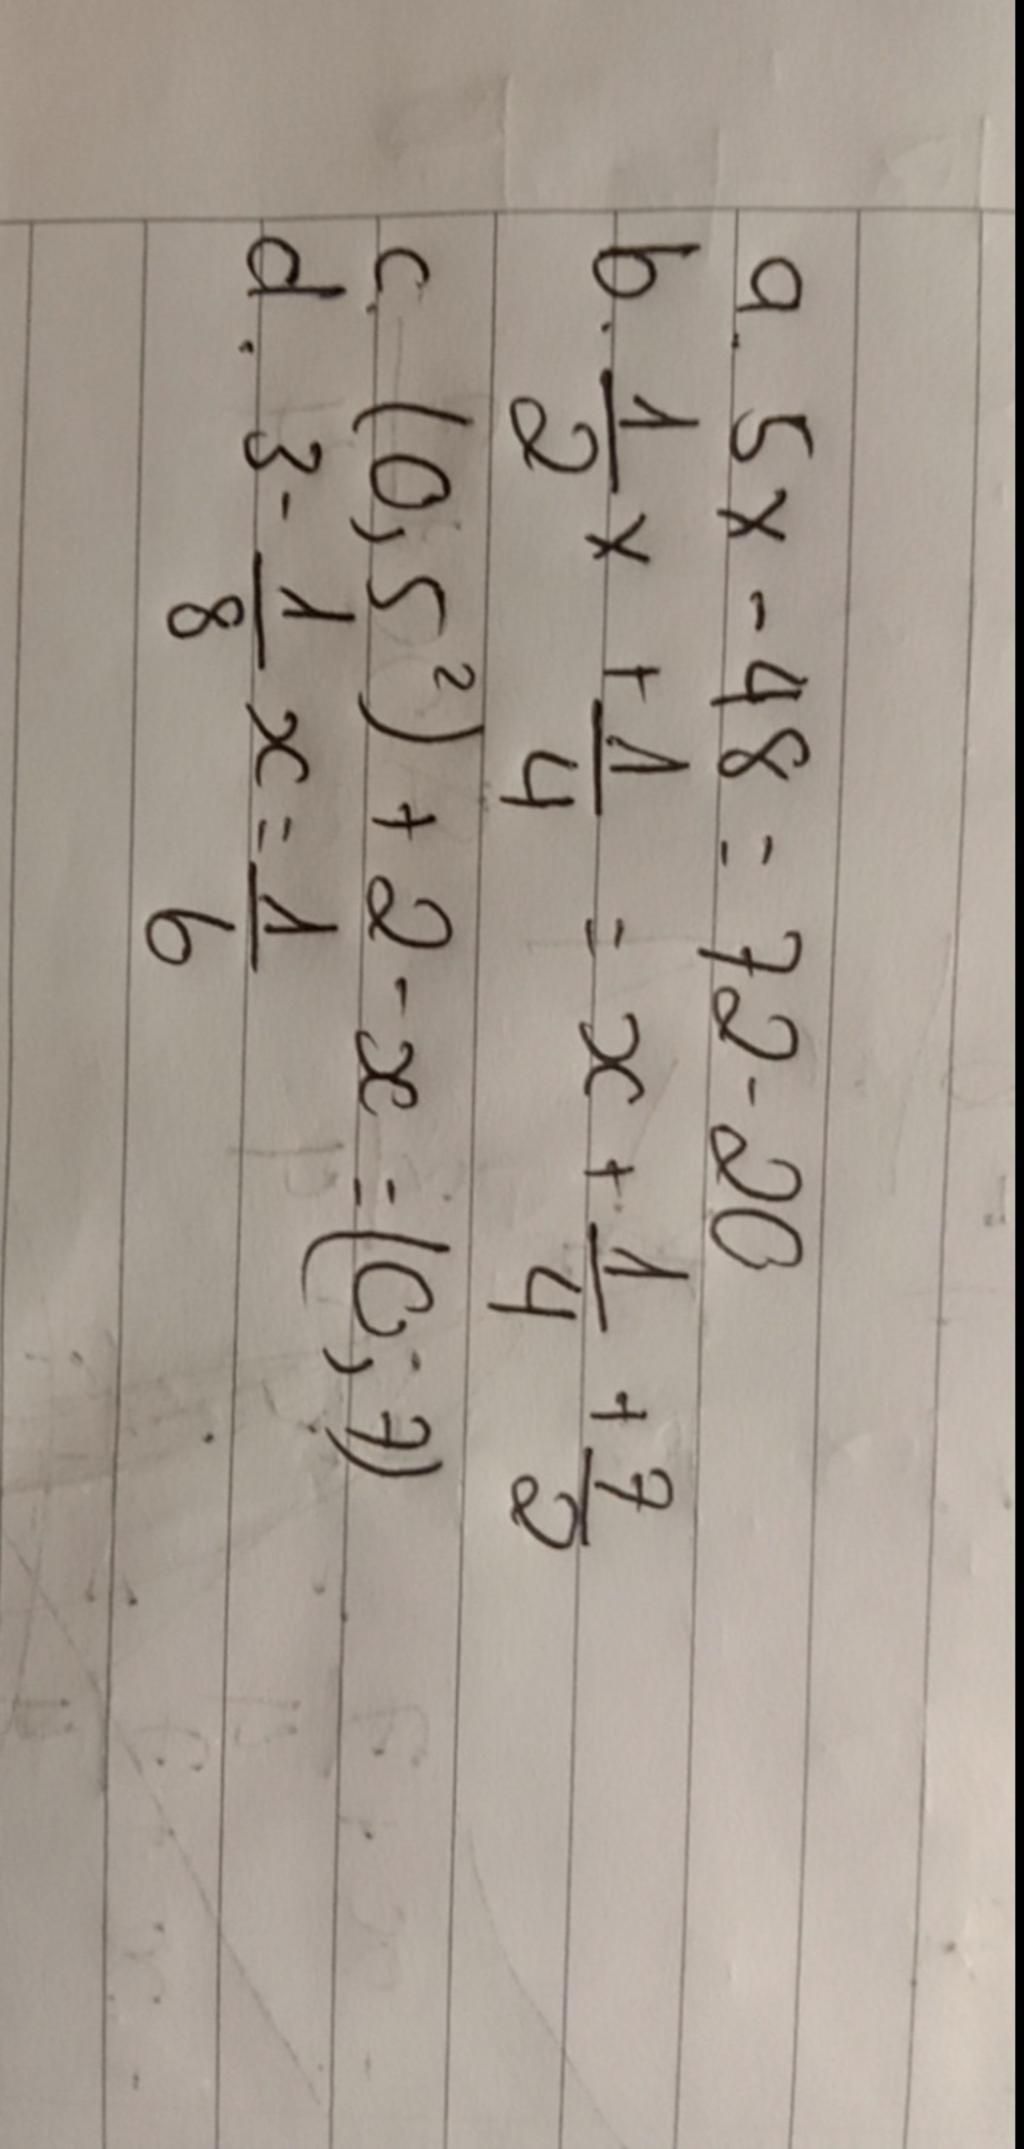 a. 5x - 48 = 72 - 20
b. 1/2 x + 1/4 = x + 1/4 + 7/2
c. (0,5²) + 2 - x = (0,7)
d. 3 - 1/8 x = 1/6